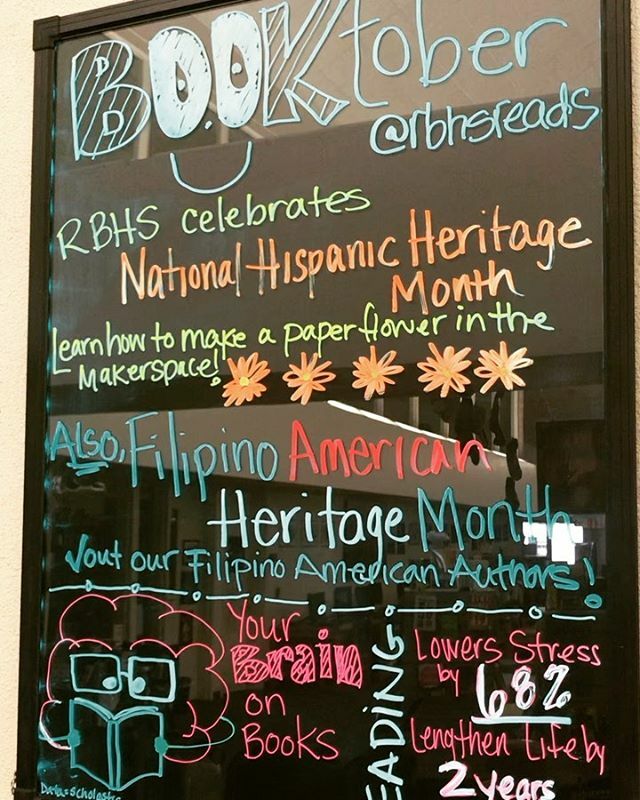 BOOKtober
@rbhsreads
RBHS celebrates
National Hispanic Heritage
Month
Learn how to make a paper flower in the
Makerspace!
Also, Filipino American
Heritage Month
√out our Filipino American Authors!
Your
Brain
on
Books
EADING
Lowers Stress
by 68%
Lengthen Life by
2 years
Data=Scholastic